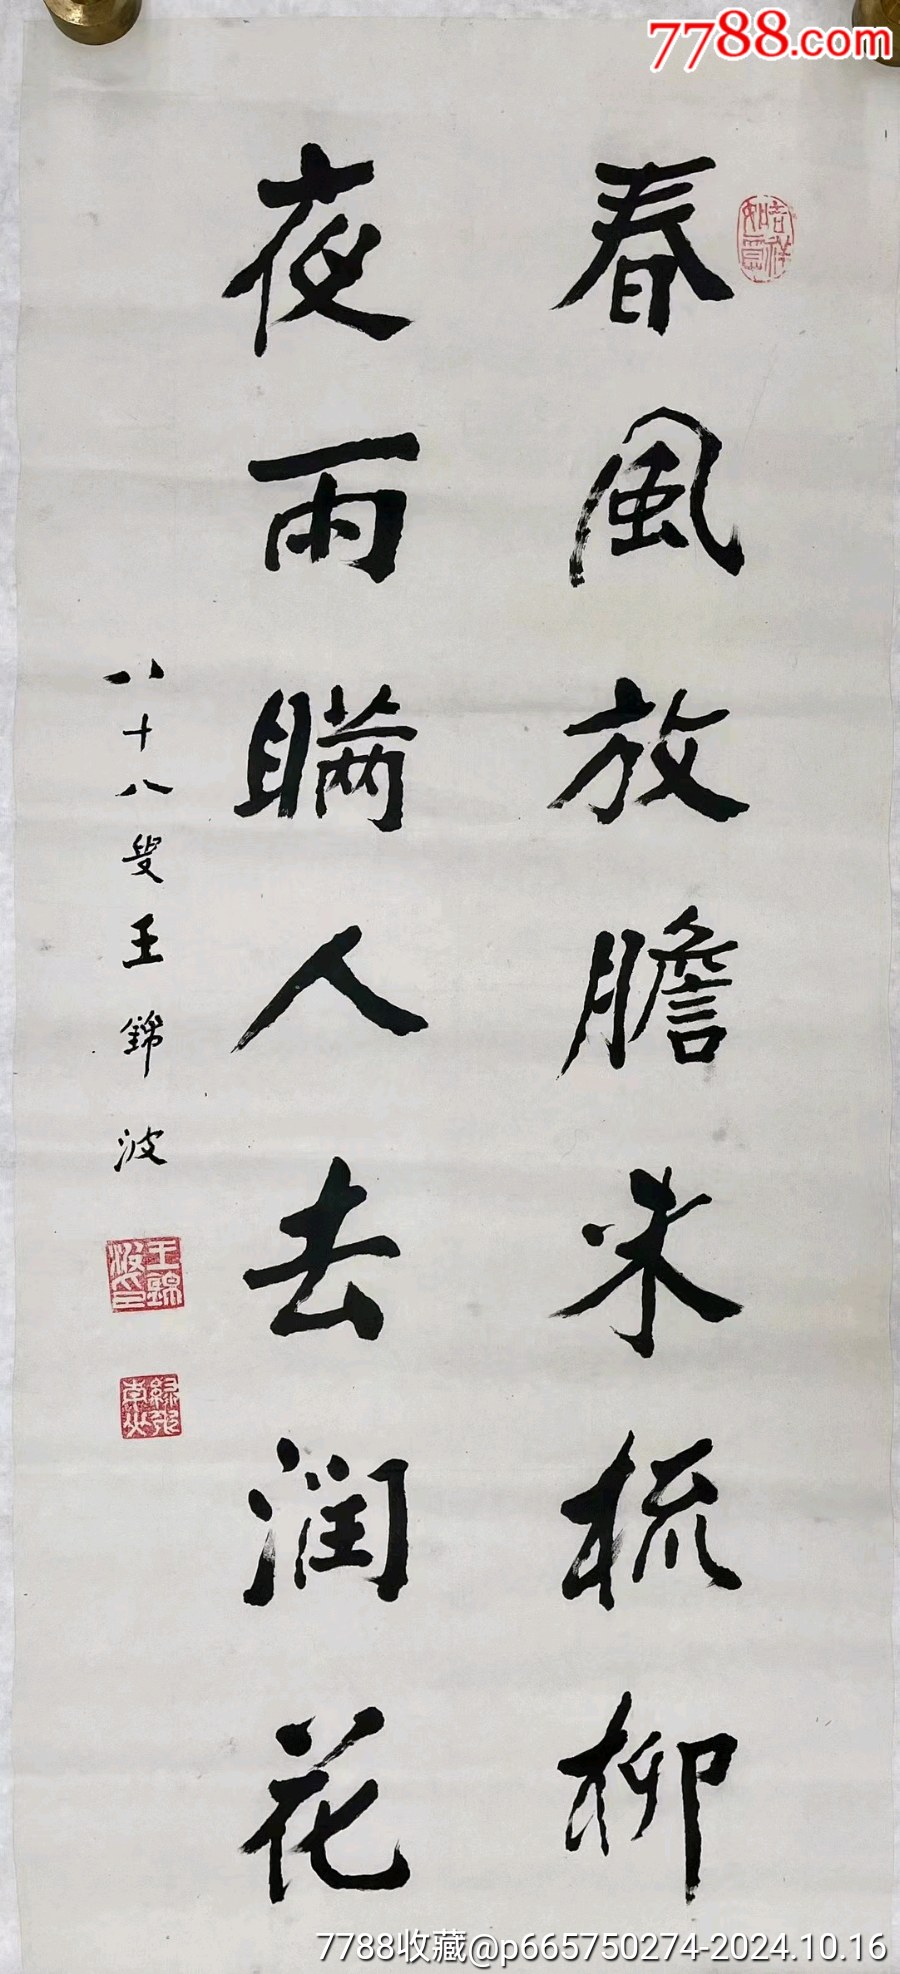 7788.com
春風放膽来梳柳
夜雨瞒人去润花
八十八叟王錦波
吉祥如意
王錦波印
7788收藏@p665750274-2024.10.16